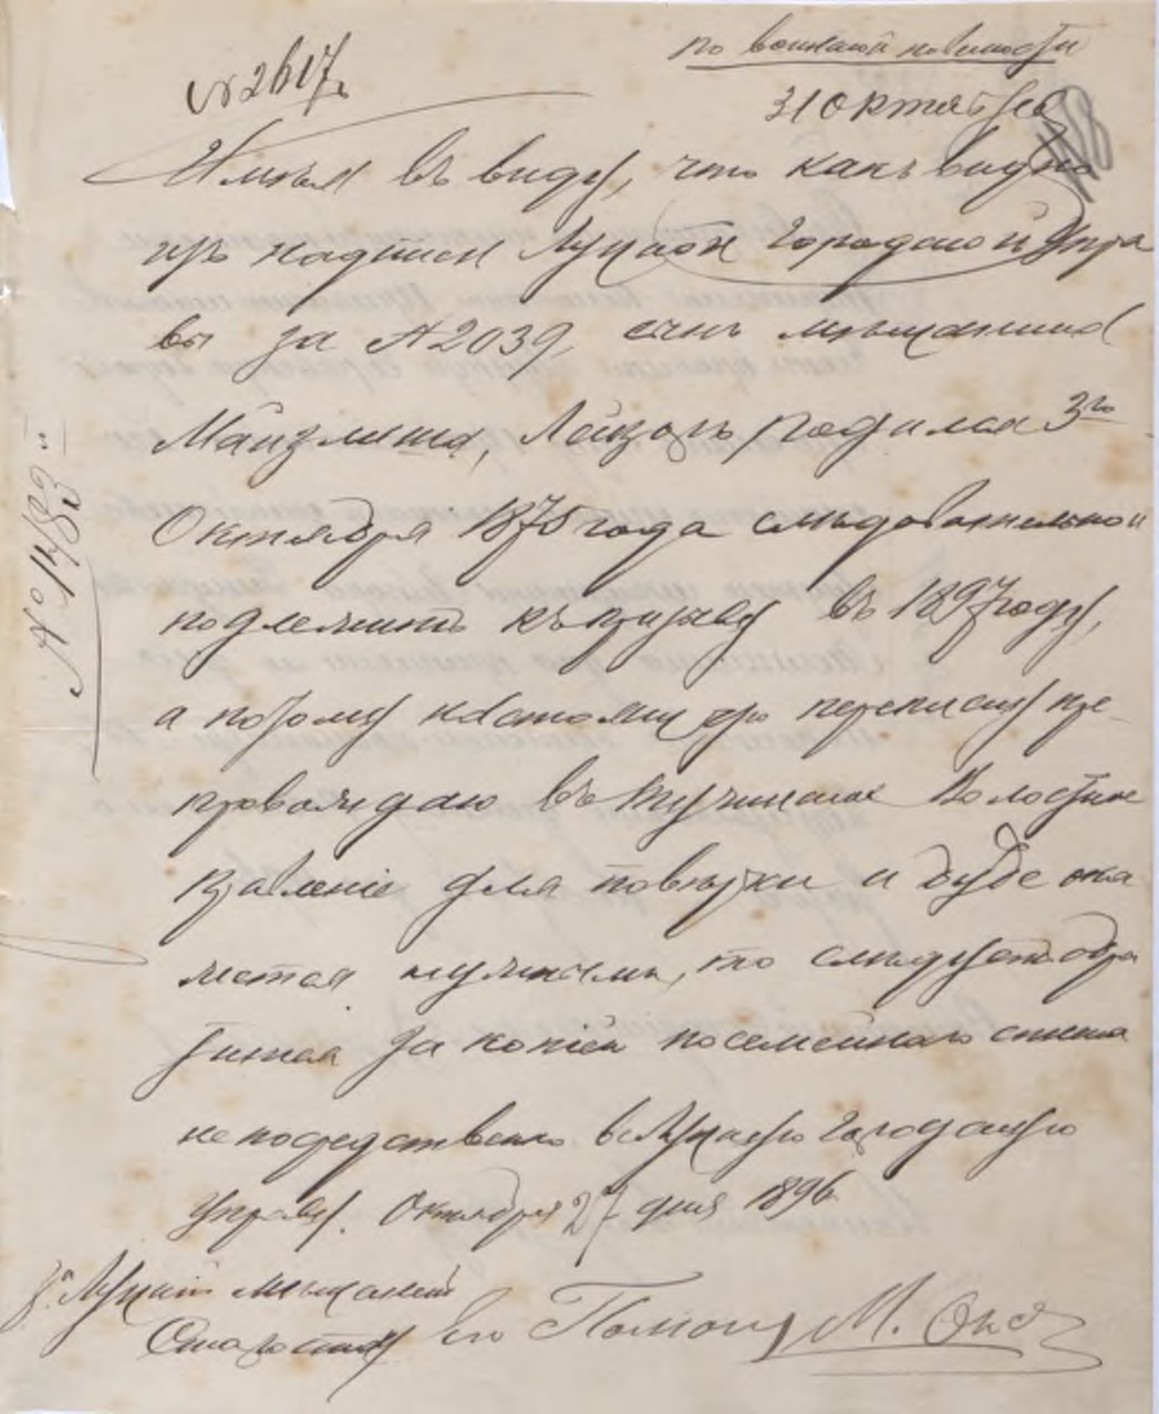 по воинской повинности
№ 2617.
31 Октября
Имѣя въ виду, что какъ видно
изъ надписи Луцкой Городской Упра
вы за № 2039, сынъ мѣщанина
Майзлиша, Лейзоръ родился 3го
Октября 1875 года слѣдовательно и
подлежитъ къ призыву въ 1897 году,
а потому настоящую переписку пре
провождаю въ Волостное
Правленіе для повѣрки и буде ока
жется нужнымъ, то слѣдуетъ обра
титься за копіей посемейнаго списка
непосредственно въ Луцкую Городскую
Управу. Октября 27 дня 1896
За Луцкій мѣщанскій
Старосты его Помощ М.
№ 1483